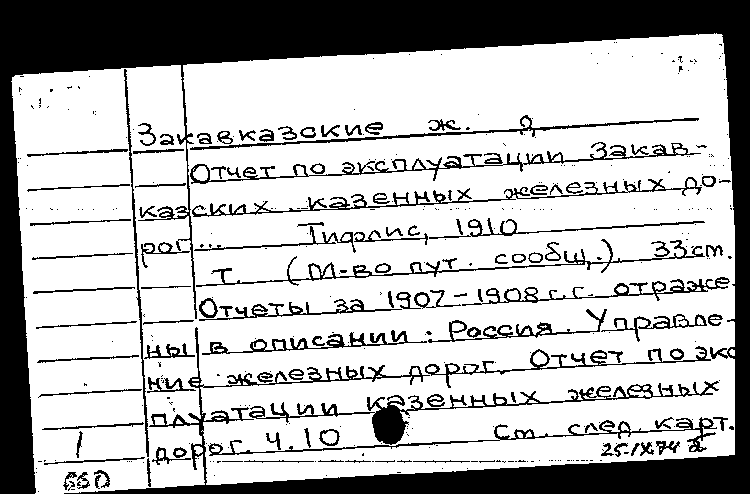 Закавказские ж. д.
Отчет по эксплуатации Закав-
казских казенных железных до-
рог... Тифлис, 1910
т. (М-во пут. сообщ.). 33 см.
Отчеты за 1907-1908 г.г. отраже-
ны в описании: Россия. Управле-
ние железных дорог. Отчет по экс
плуатации казенных железных
дорог. Ч. 10 См. след. карт.
1
25.IX.74